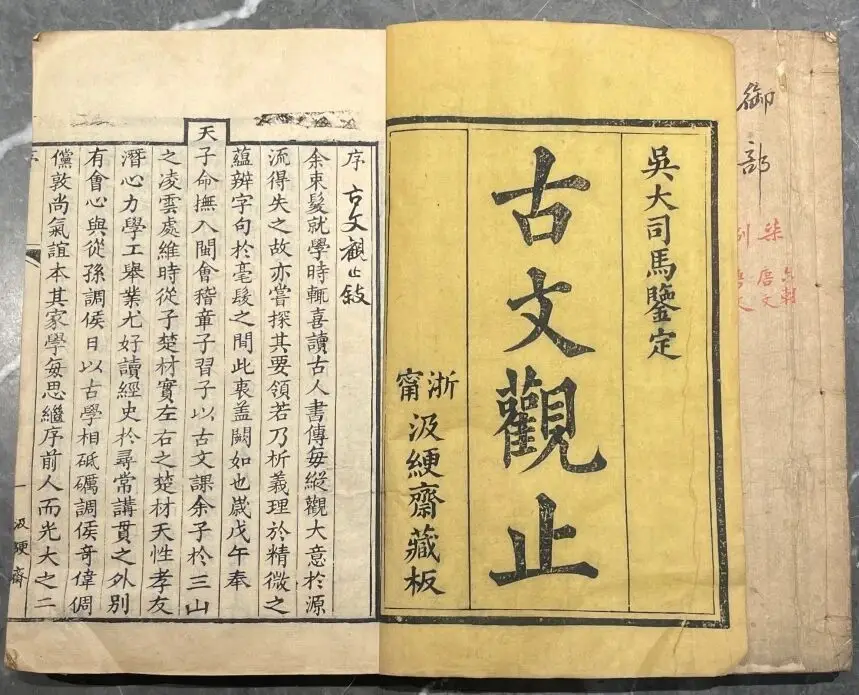 御部
六朝
柒唐文
吳大司馬鑒定
古文觀止
浙甯
汲綆齋藏板
序 古文觀止敘
余束髮就學時輒喜讀古人書傳每縱觀大意於源
流得失之故亦嘗探其要領若乃析義理於精微之
蘊辨字句於毫髮之間此衷盖闕如也歲戊午奉
天子命撫入閩會稽章子習子以古文課余子於三山
之凌雲處維時從子楚材實左右之楚材天性孝友
潛心力學工舉業尤好讀經史於尋常講貫之外別
有會心與從孫調侯日以古學相砥礪調侯奇偉倜
儻敦尚氣誼本其家學每思繼序前人而光大之二
一 汲綆齋